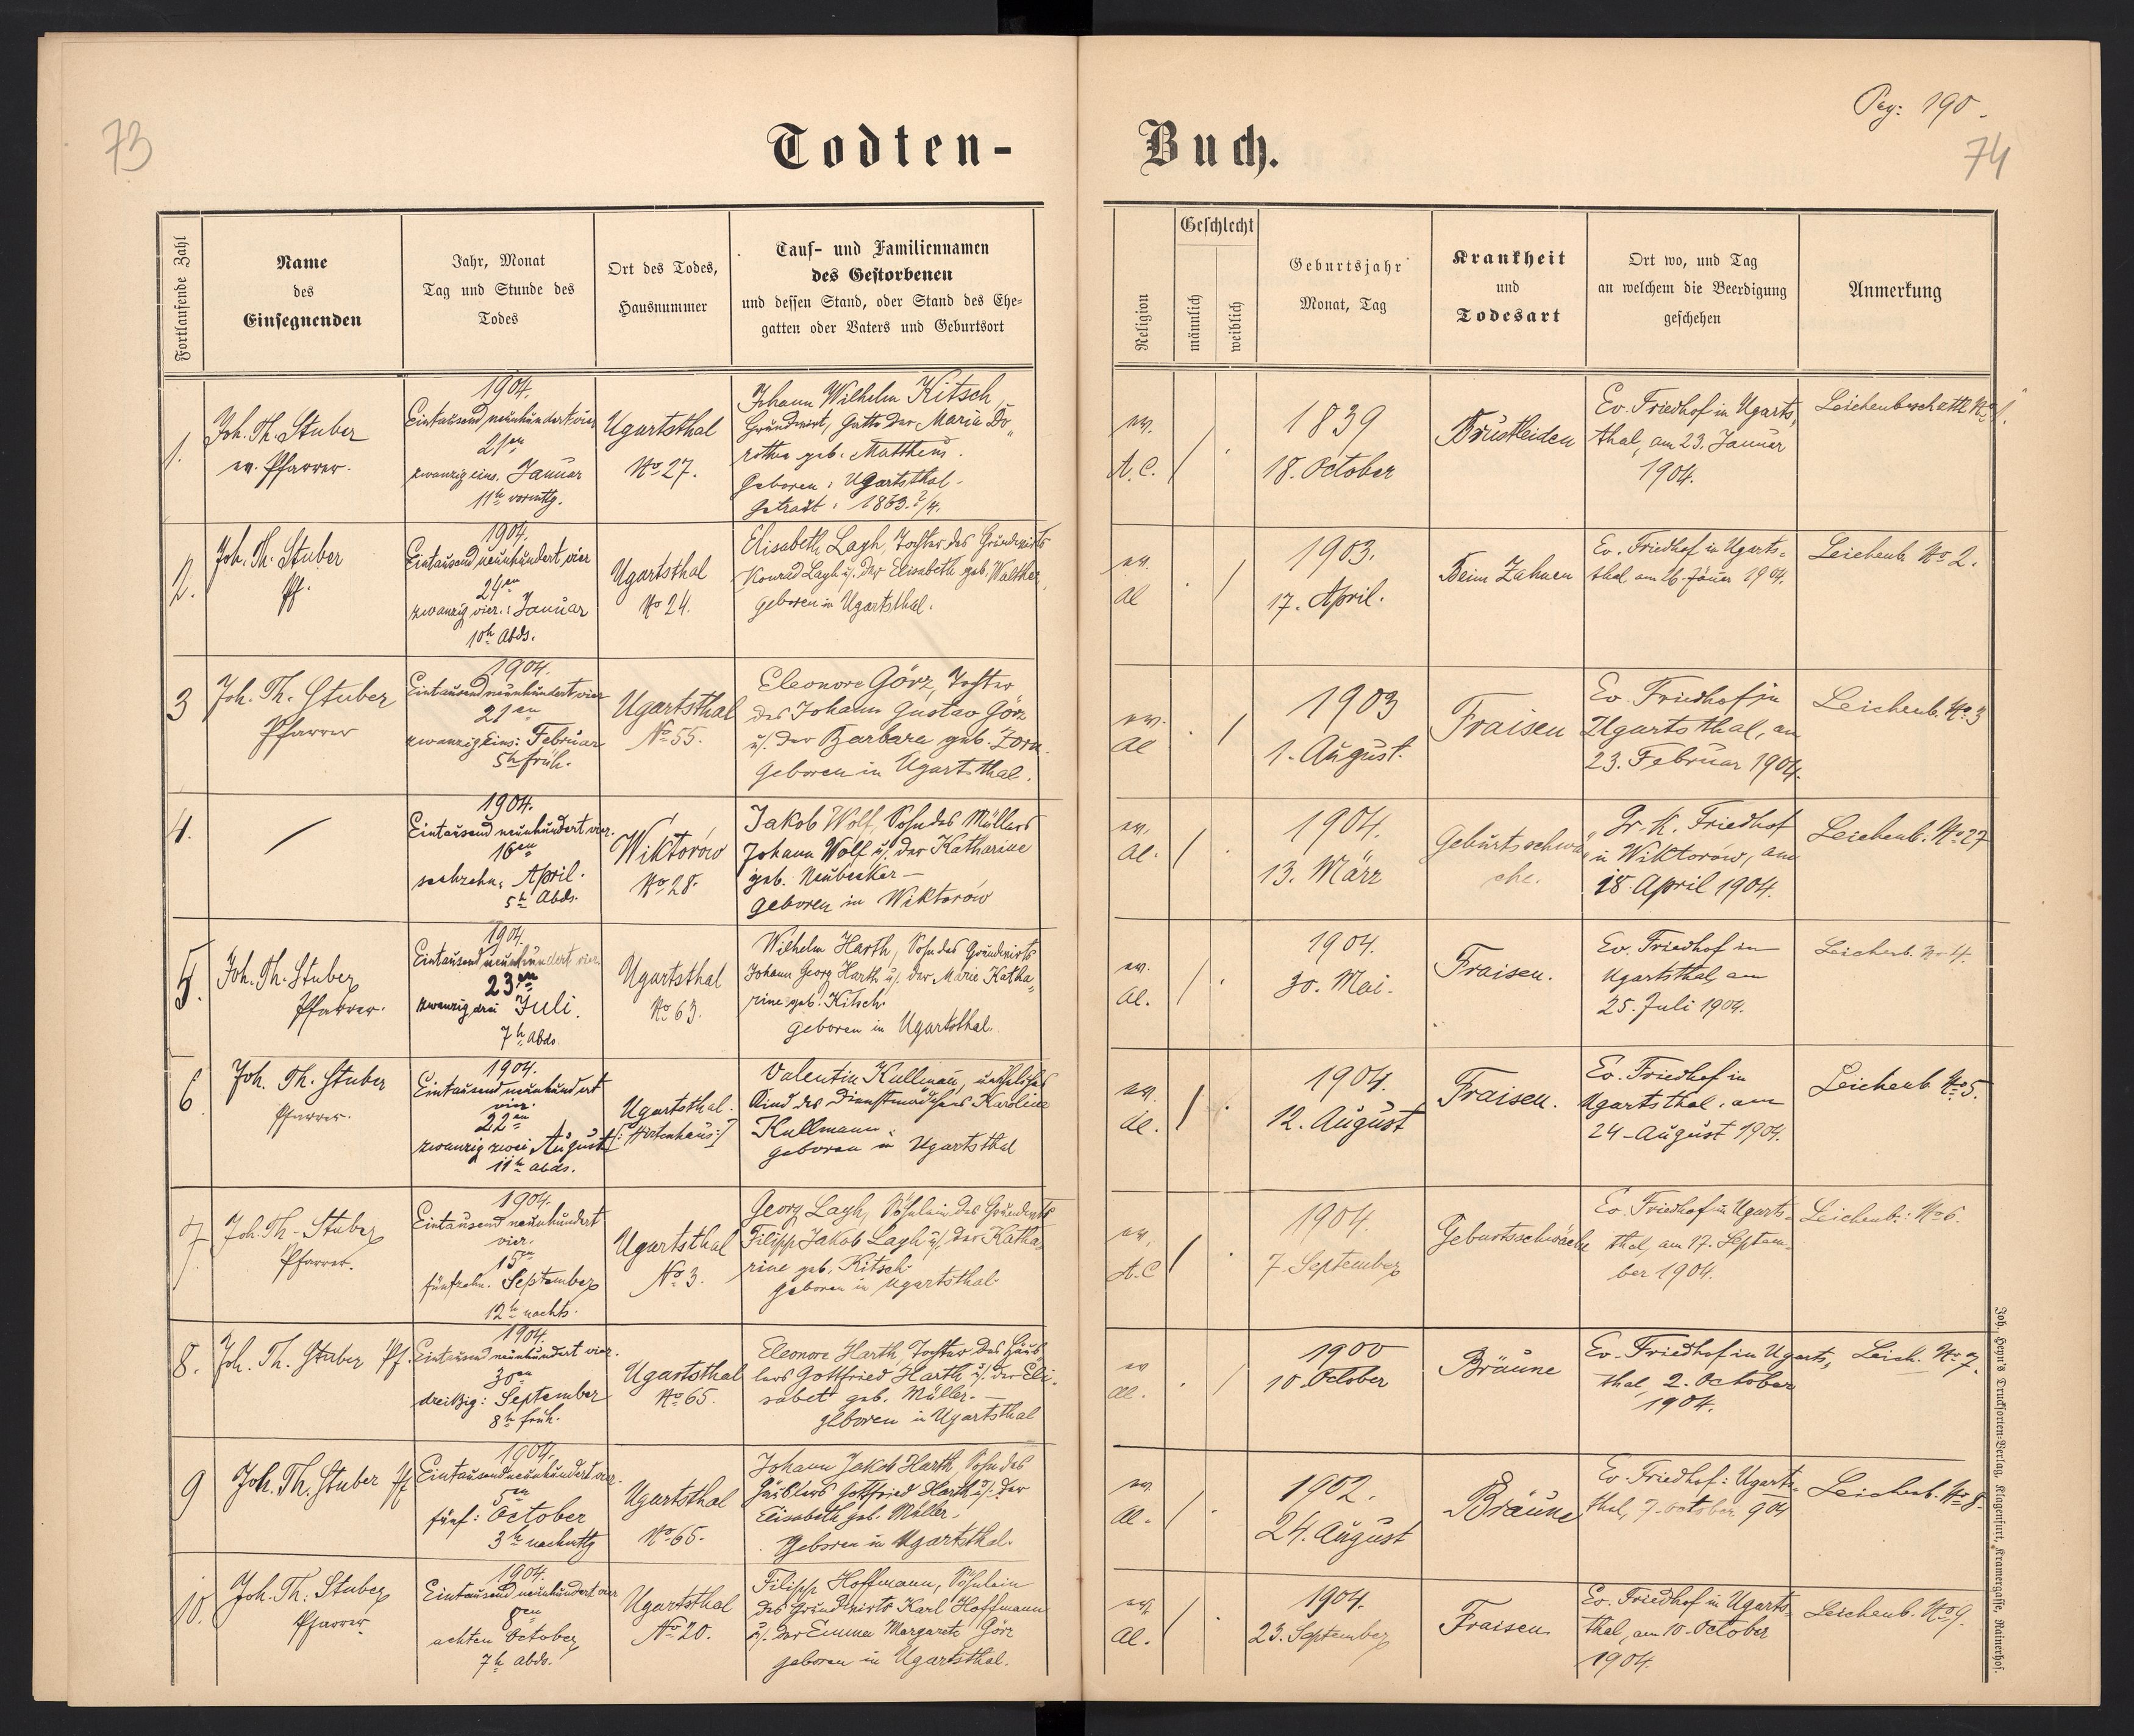 73
Todten-
Buch.
Pag: 190.
74
Fortlaufende Zahl
Name
des
Einsegnenden
Jahr, Monat
Tag und Stunde des
Todes
Ort des Todes,
Hausnummer
Tauf- und Familiennamen
des Gestorbenen
und dessen Stand, oder Stand des Ehe-
gatten oder Vaters und Geburtsort
Religion
Geschlecht
männlich
weiblich
Geburtsjahr
Monat, Tag
Krankheit
und
Todesart
Ort wo, und Tag
an welchem die Beerdigung
geschehen
Anmerkung
1.
Joh. Th. Stuber
ev. Pfarrer.
1904.
Eintausend neunhundert vier
21en
zwanzig eins. Januar
11h vormttg.
Ugartsthal
No 27.
Johann Wilhelm Kitsch
Grundwirt, Gatte der Maria Do„
rothea geb. Mattheus.
Geboren: Ugartsthal-
Getraut: 1863.
ev.
A.C.
1839
18. October
Brustleiden
Ev. Friedhof in Ugarts„
thal, am 23. Januar
1904.
Leichenbeschattl No 1.
2.
Joh. Th. Stuber
Pf.
1904.
Eintausend neunhundert vier
24en
zwanzig vier.: Januar
10h Abds.
Ugartsthal
No 24.
Elisabeth Layh, Tochter des Grundwirts
Konrad Layh u. der Elisabeth geb. Walther,
geboren in Ugartsthal.
ev.
Al
1903.
17. April.
Beim Zahnen
Ev. Friedhof in Ugarts-
thal am 26. Jäner 1904.
Leichenb. No 2.
3
Joh. Th. Stuber
Pfarrer
1904.
Eintausend neunhundert vier
21en
zwanzig eins: Februar
5h früh.
Ugartsthal
No 55.
Eleonore Görz, Tochter
des Johann Gustav Görz
u. der Barbara geb. Zorn
geboren in Ugartsthal.
ev.
Al
1903
1. August.
Fraisen
Ev. Friedhof in
Ugartsthal, am
23. Februar 1904.
Leichenb. No 3
4.
1904.
Eintausend neunhundert vier.
16en
sechzehn, April.
5h Abds.
Wiktorów
No 28.
Jakob Wolf, Sohn des Müllers
Johann Wolf u. der Katharine
geb. Neubecker-
geboren in Wiktorów
ev.
Al.
1904.
13. März
Geburtsschwä„
che.
Gr. K. Friedhof
in Wiktorów, am
18. April 1904.
Leichenb. No 27
5.
Joh. Th. Stuber
Pfarrer.
1904.
Eintausend neunhundert vier.
23en
zwanzig drei Juli.
7h Abds.
Ugartsthal
No 63.
Wilhelm Harth, Sohn des Grundwirts
Johann Georg Harth u. der Marie Katha„
rine geb. Kitsch.
geboren in Ugartsthal.
ev.
Al.
1904.
30. Mai.
Fraisen.
Ev. Friedhof in
Ugartsthal, am
25. Juli 1904.
Leichenb. No 4.
6.
Joh. Th. Stuber
Pfarrer.
1904.
Eintausend neunhundert
vier.
22en
zwanzig zwei August
11h abds.
Ugartsthal.
[: Hirtenhaus:]
Valentin Kullmann, uneheliches
Kind des Dienstmädchens Karoline
Kullmann.
geboren in Ugartsthal
ev.
Al.
1904.
12. August
Fraisen.
Ev. Friedhof in
Ugartsthal, am
24-August 1904.
Leichenb No 5.
7.
Joh. Th. Stuber
Pfarrer.
1904.
Eintausend neunhundert
vier.
15en
fünfzehn. September
12h nachts.
Ugartsthal
No 3.
Georg Layh, Söhnlein des Grundwirts
Filipp Jakob Layh u. der Katha
rine geb. Kitsch.
geboren in Ugartsthal.
ev.
A.C
1904.
7. September
Geburtsschwäche
Ev. Friedhof in Ugarts-
thal, am 17. Septem-
ber 1904.
Leichenb.: No 6.
8.
Joh. Th. Stuber Pf.
1904.
Eintausend neunhundert vier.
30en
dreißig: September
8h früh.
Ugartsthal
No 65.
Eleonore Harth, Tochter des Häus
lers Gottfried Harth u. der Eli-
sabet geb. Müller.-
geboren in Ugartsthal
ev
Al.
1900
10. October
Bräune
Ev. Friedhof in Ugarts„
thal, 2. October
1904.
Leich. No 7.
9
Joh. Th. Stuber Pf
1904.
Eintausend neunhundert vier.
5en
fünf: October
3h nachmttg
Ugartsthal
No 65.
Johann Jakob Harth, Sohn des
Häuslers Gottfried Harth u. der
Elisabeth geb. Müller.
Geboren in Ugartsthal.
ev.
Al.
1902.
24. August
Bräune
Ev. Friedhof: Ugarts-
thal, 7. october 904
Leichenb. No 8.
10.
Joh. Th. Stuber
Pfarrer.
1904.
Eintausend neunhundert vier
8en
achten October
7h abds.
Ugartsthal
No 20.
Filipp Hoffmann, Söhnlein
des Grundwirts Karl Hoffmann
u. der Emma Margarete Görz
geboren in Ugartsthal.
ev.
Al.
1904.
23. September
Fraisen
Ev. Friedhof in Ugarts-
thal, am 10. October
1904.
Leichenb. No 9.
Joh. Heyn's Drucksorten-Verlag, Klagenfurt, Kramergasse, Rainerhof.